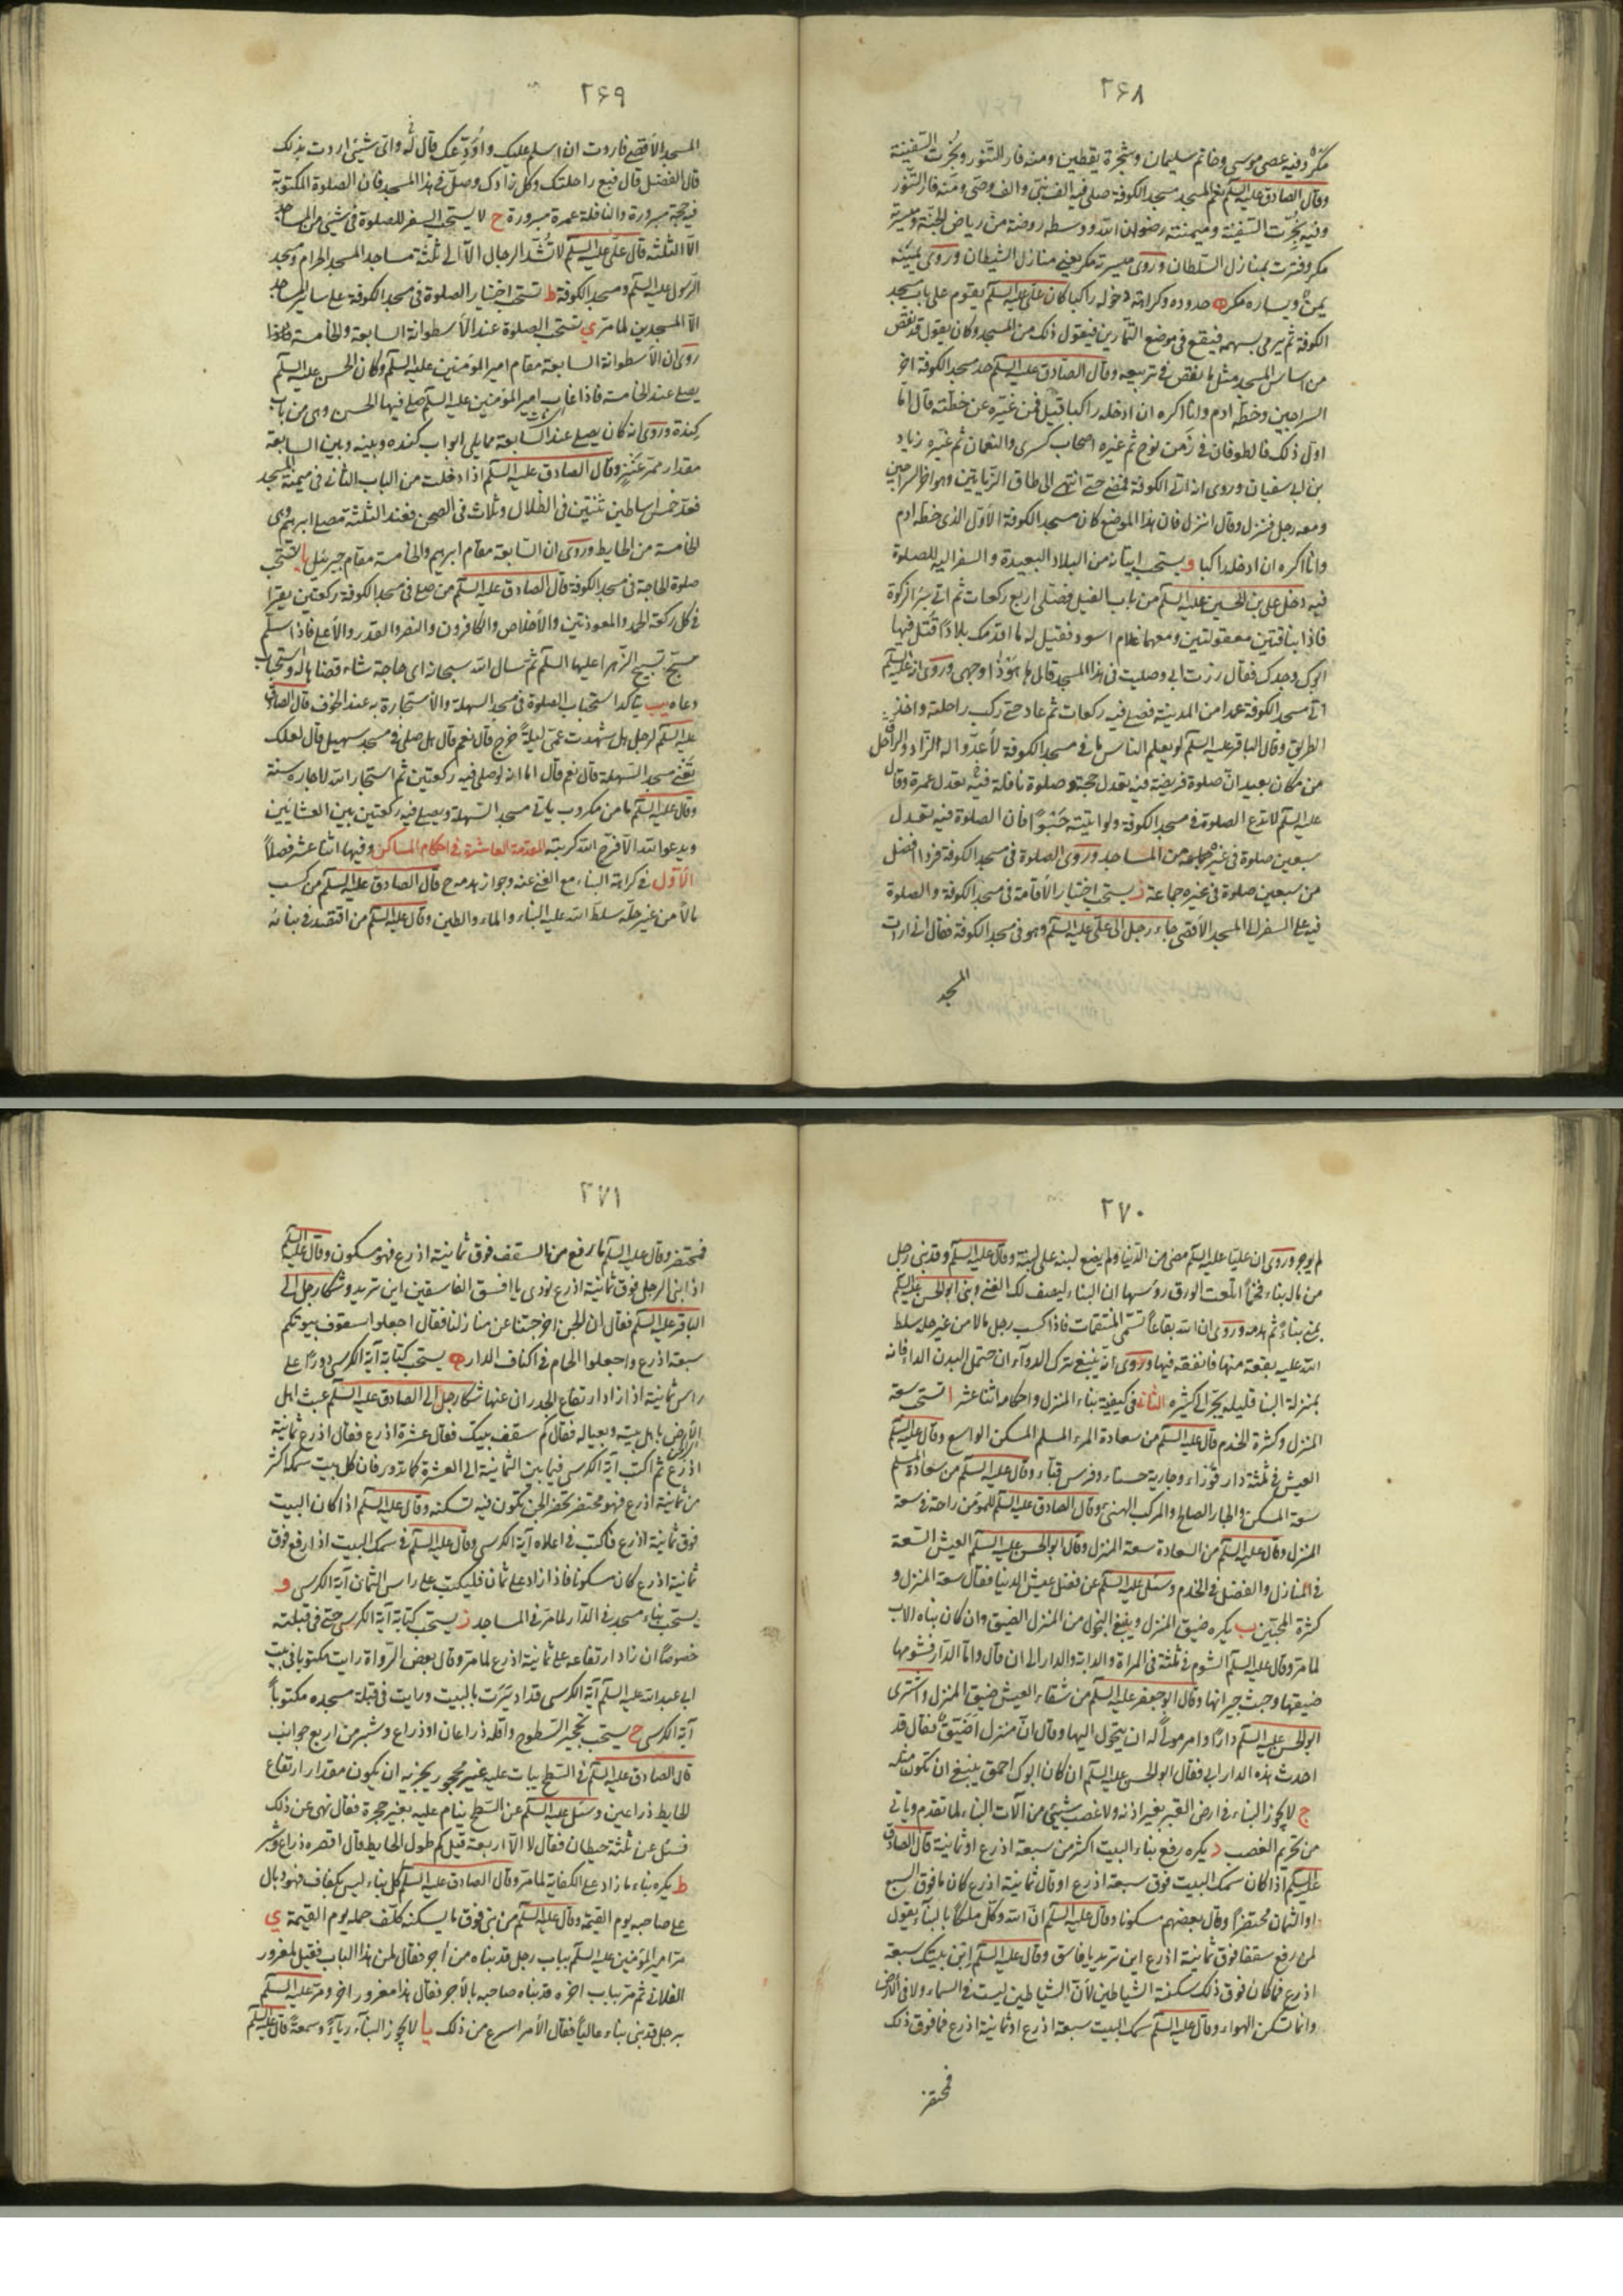 ٢۶٨
مكر وفيه عصى موسى وخاتم سليمان وشجرة يقطين ومنه فار التنور وبجرت السفينة
وقال الصادق عليه السلم نعم المسجد مسجد الكوفة صلى فيه الف نبى والف وصى ومنه فار التنور
وفيه نجرت السفينة وميمنته رضوان الله ووسطه روضة من رياض الجنة وميسرته
مكر وفسرت بمنازل السلطان وروى ميسرته مكر يعنى منازل الشيطان وروى بميمنته
يمن ويساره مكر ه حدوده وكراهة دخوله راكبا كان على عليه السلم يقوم على باب مسجد
الكوفة ثم يرمى بسهمه فيقع فى موضع التمارين فيقول ذلك من المسجد وكان يقول قد نقص
من اساس المسجد مثل ما نقص فى تربيعه وقال الصادق عليه السلم حد مسجد الكوفة اخر
السراجين وخطه ادم وانا اكره ان ادخله راكبا قيل فمن غيره عن خطته قال اما
اول ذلك فالطوفان فى زمن نوح ثم غيره اصحاب كسرى والنعمان ثم غيره زياد
بن ابى سفيان وروى انه اتى الكوفة فمضى حتى انتهى الى طاق الزياتين وهو اخر السراجين
ومعه رجل فنزل وقال انزل فان هذا الموضع كان مسجد الكوفة الاول الذى خطه ادم
وانا اكره ان ادخله راكبا و يستحب اتيانه من البلاد البعيدة والسفر اليه للصلوة
فيه دخل على بن الحسين عليه السلم من باب الفيل فصلى اربع ركعات ثم اتى بئر الزكوة
فاذا بناقتين معقولتين ومعهما غلام اسود فقيل له ما اقدمك بلادا قتل فيها
ابوك وجدك فقال زرت ابى وصليت فى هذا المسجد قال ها هو ذا وجهى وروى انه عليه السلم
اتى مسجد الكوفة عمدا من المدينة فصلى فيه ركعات ثم عاد حتى ركب راحلته واخذ
الطريق وقال الباقر عليه السلم لو يعلم الناس ما فى مسجد الكوفة لاعدوا له الزاد والراحل
من مكان بعيد ان صلوة فريضة فيه تعدل حجة وصلوة نافلة فيه تعدل عمرة وقال
عليه السلم لا تدع الصلوة فى مسجد الكوفة ولو اتيته حبوا فان الصلوة فيه تعدل
سبعين صلوة فى غيره من المساجد وروى الصلوة فى مسجد الكوفة فردا افضل
من سبعين صلوة فى غيره جماعة ز يستحب اختيار الاقامة فى مسجد الكوفة والصلوة
فيه على السفر الى المسجد الاقصى جاء رجل الى على عليه السلم وهو فى مسجد الكوفة فقال انى اردت
المسجد
٢۶٩
المسجد الاقصى فاردت ان اسلم عليك واودعك قال له واى شيئ اردت بذلك
قال الفضل قال فبع راحلتك وكل زادك وصل فى هذا المسجد فان الصلوة المكتوبة
فيه حجة مبرورة والنافلة عمرة مبرورة ح لا يستحب السفر للصلوة فى شيئ من المساجد
الا الثلثة قال على عليه السلم لا تشد الرحال الا الى ثلثة مساجد المسجد الحرام ومسجد
الرسول عليه السلم ومسجد الكوفة ط تستحب اختيار الصلوة فى مسجد الكوفة على ساير المساجد
الا المسجدين لما مر ي تستحب الصلوة عند الاسطوانة السابعة والخامسة
روى ان الاسطوانة السابعة مقام امير المؤمنين عليه السلم وكان الحسن عليه السلم
يصلى عند الخامسة فاذا غاب امير المؤمنين عليه السلم صلى فيها الحسن وهى من باب
كندة وروى انه كان يصلى عند السابعة مما يلى ابواب كنده وبينه وبين السابعة
مقدار ممر عنز وقال الصادق عليه السلم اذا دخلت من الباب الثانى فى ميمنة المسجد
فعد خمس اساطين ثنتين فى الظلال وثلاث فى الصحن فعند الثلثة مصلى ابرهيم وهى
الخامسة من الحايط وروى ان السابعة مقام ابرهيم والخامسة مقام جبرئيل يا تستحب
صلوة الحاجة فى مسجد الكوفة قال الصادق عليه السلم من صلى فى مسجد الكوفة ركعتين يقرا
فى كل ركعة الحمد والمعوذتين والاخلاص والكافرون والنصر والقدر والاعلى فاذا سلم
سبح تسبيح الزهرا عليها السلم ثم سال الله سبحانه اى حاجة شاء قضاها له واستجاب
دعاه يب يتاكد استحباب الصلوة فى مسجد السهلة والاستجارة به عند الخوف قال الصادق
عليه السلم لرجل هل شهدت عمى ليلة خرج قال نعم قال هل صلى فى مسجد سهيل قال لعلك
تعنى مسجد السهلة قال نعم قال اما انه لو صلى فيه ركعتين ثم استجار الله لاجاره سنة
وقال عليه السلم ما من مكروب ياتى مسجد السهلة ويصلى فيه ركعتين بين العشائين
ويدعو الله الا فرج الله كربته المقدمة العاشرة فى احكام المساكن وفيها اثنا عشر فصلا
الاول فى كراهة البناء مع الغنى عنه وجواز هدمه ح قال الصادق عليه السلم من كسب
مالا من غير حله سلط الله عليه البناء والماء والطين وقال عليه السلم من اقتصد فى بنائه
٢٧٠
لم يوجر وروى ان عليا عليه السلم مضى من الدنيا ولم يضع لبنة على لبنة وقال عليه السلم وقد بنى رجل
من ماله بناء فخما اطلعت الورق رؤسها ان البناء ليصف لك الغنى وبنى ابو الحسن عليه السلم
بمنى بناء ثم هدمه وروى ان لله بقاعا تسمى المنتقمات فاذا كسب رجل مالا من غير حله سلط
الله عليه بقعة منها فانفقه فيها وروى انه ينبغى ترك الدواء ان حتمل البدن الداء فانه
بمنزلة البنا قليله يجر الى كثيره الثانى فى كيفية بناء المنزل واحكامه اثنا عشر ا تستحب سعة
المنزل وكثرة الخدم قال عليه السلم من سعادة المرء المسلم المسكن الواسع وقال عليه السلم
العيش فى ثلثة دار قوراء وجارية حسناء وفرس قباء وقال عليه السلم من سعادة المسلم
سعة المسكن والجار الصالح والمركب الهنئ وقال الصادق عليه السلم للمؤمن راحة فى سعة
المنزل وقال عليه السلم من السعادة سعة المنزل وقال ابو الحسن عليه السلم العيش السعة
فى المنازل والفضل فى الخدم وسئل عليه السلم عن فضل عيش الدنيا فقال سعة المنزل و
كثرة المحبين ب يكره ضيق المنزل وينبغى التحول من المنزل الضيق وان كان بناه الاب
لما مر وقال عليه السلم الشوم فى ثلثة فى المراة والدابة والدار الى ان قال واما الدار فشومها
ضيقها وخبث جيرانها وقال ابو جعفر عليه السلم من شقاء العيش ضيق المنزل واشترى
ابو الحسن عليه السلم دارا وامر مولى له ان يتحول اليها وقال ان منزل اضيق فقال قد
احدث هذه الدار ابى فقال ابو الحسن عليه السلم ان كان ابوك احمق ينبغى ان تكون مثله
ج لا يجوز البناء فى ارض الغير بغير اذنه ولا غصب شيئ من آلات البناء لما تقدم وياتى
من تحريم الغصب د يكره رفع بناء البيت اكثر من سبعة اذرع او ثمانية قال الصادق
عليه السلم اذا كان سمك البيت فوق سبعة اذرع او قال ثمانية اذرع كان ما فوق السبع
او الثمان محتضرا وقال بعضهم مسكونا وقال عليه السلم ان الله وكل ملكا بالبناء يقول
لمن رفع سقفا فوق ثمانية اذرع اين تريد يا فاسق وقال عليه السلم ابن بيتك سبعة
اذرع فما كان فوق ذلك سكنة الشياطين لان الشياطين ليست فى السماء ولا فى الارض
وانما تسكن الهواء وقال عليه السلم سمك البيت سبعة اذرع او ثمانية اذرع فما فوق ذلك
فمحتضر
٢٧١
فمحتضر وقال عليه السلم ما رفع من السقف فوق ثمانية اذرع فهو مسكون وقال عليه السلم
اذا بنى الرجل فوق ثمانية اذرع نودى يا افسق الفاسقين اين تريد وشكا رجل الى
الباقر عليه السلم فقال ان الجن اخرجتنا عن منازلنا فقال اجعلوا سقوف بيوتكم
سبعة اذرع واجعلوا الحمام فى اكناف الدار ه يستحب كتابة آية الكرسى دورا على
راس ثمانية اذا زاد ارتفاع الجدران عنها شكا رجل الى الصادق عليه السلم عبث اهل
الارض باهل بيته وبعياله فقال كم سقف بيتك فقال عشرة اذرع فقال اذرع ثمانية
اذرع ثم اكتب آية الكرسى فيما بين الثمانية الى العشرة كما تدور فان كل بيت سمكه اكثر
من ثمانية اذرع فهو محتضر تحضر الجن تكون فيه تسكنه وقال عليه السلم اذا كان البيت
فوق ثمانية اذرع فاكتب فى اعلاه آية الكرسى وقال عليه السلم فى سمك البيت اذا رفع فوق
ثمانية اذرع كان مسكونا فاذا زاد على ثمان فليكتب على راس الثمان آية الكرسى و
يستحب بناء مسجد فى الدار لما مر فى المساجد ز يستحب كتابة آية الكرسى حتى فى قبلته
خصوصا ان زاد ارتفاعه على ثمانية اذرع لما مر وقال بعض الرواة رايت مكتوبا فى بيت
ابى عبدالله عليه السلم آية الكرسى قد اديرت بالبيت ورايت فى قبلة مسجده مكتوبا
آية الكرسى ح يستحب تحجير السطوح واقله ذراعان او ذراع وشبر من اربع جوانب
قال الصادق عليه السلم فى السطح يبات عليه غير محجر يجزيه ان يكون مقدار ارتفاع
الحايط ذراعين وسئل عليه السلم عن السطح ينام عليه بغير حجرة فقال نهى عن ذلك
فسئل عن ثلثة حيطان فقال لا الا اربعة قيل كم طول الحايط قال اقصره ذراع وشبر
ط يكره بناء ما زاد على الكفاية لما مر وقال الصادق عليه السلم كل بناء ليس بكفاف فهو وبال
على صاحبه يوم القيمة وقال عليه السلم من بنى فوق ما يسكنه كلف حمله يوم القيمة ي
مر امير المؤمنين عليه السلم بباب رجل قد بناه من اجر فقال لمن هذا الباب فقيل لمغرور
الفلانى ثم مر بباب اخر قد بناه صاحبه بالاجر فقال هذا مغرور اخر ومر عليه السلم
برجل قد بنى بناء عاليا فقال الامر اسرع من ذلك يا لا يجوز البناء رياء وسمعة قال عليه السلم